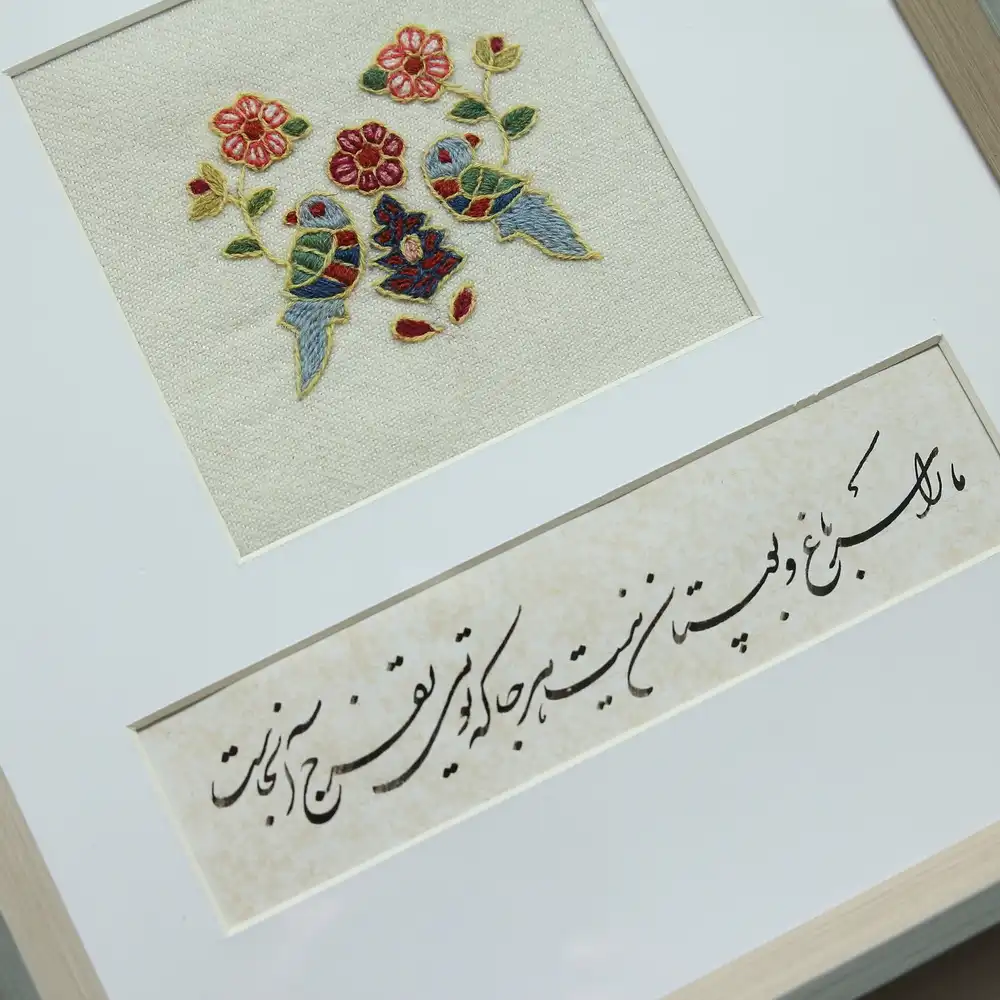 ما را سر باغ و بستان نیست هر جا که تویی تفرج آنجاست